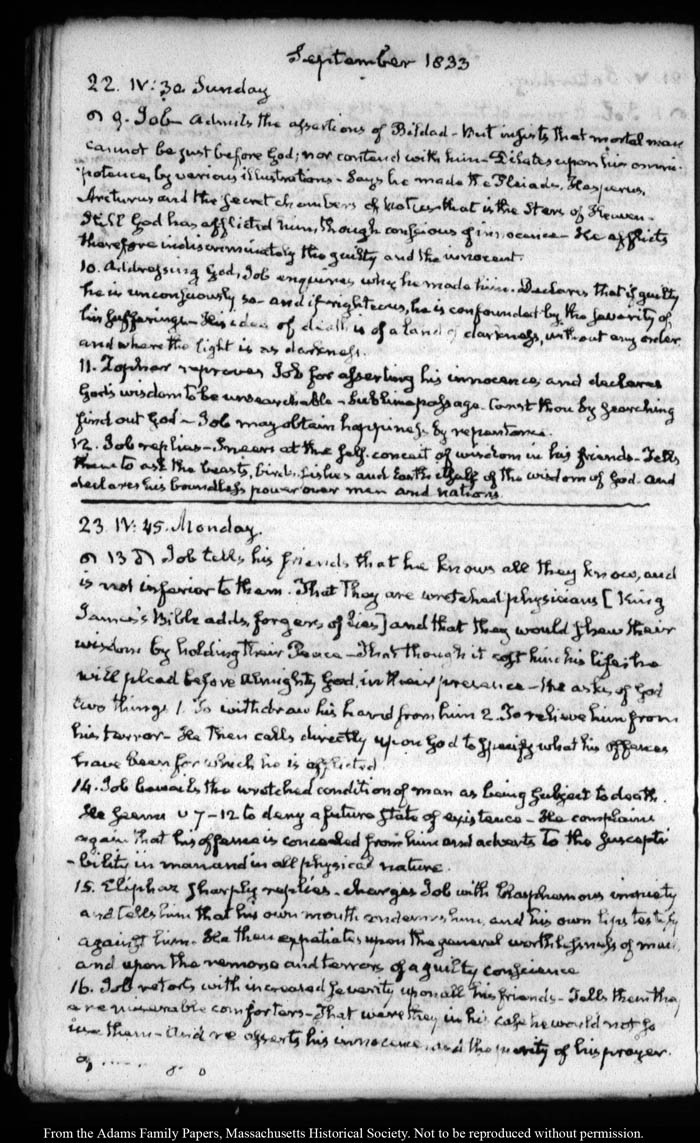 September 1833
22. IV: 30 Sunday
9. Job — Admits the assertions of Bildad — But insists that mortal man
cannot be just before God; nor contend with him — Dilates upon his omni-
potence, by various illustrations — Says he made the Pleiades, Hesperus,
Arcturus and the secret chambers of that is the Stars of Heaven —
Still God has afflicted him, though conscious of innocence — He afflicts
therefore indiscriminately the guilty and the innocent.
10. Addressing God, Job enquires why he made him. Declares that if guilty
he is unconsciously so — and if righteous, he is confounded by the severity of
his sufferings — His idea of death is of a land of darkness, without any order
and where the light is as darkness.
11. Zophar reproves Job for asserting his innocence, and declares
God's wisdom to be unsearchable — Sublime passage. Canst thou by searching
find out God — Job may obtain happiness by repentance.
12. Job replies — Sneers at the self-conceit of wisdom in his friends — Tells
them to ask the beasts, birds, fishes and Earth itself of the wisdom of God. and
declares his boundless power over men and nations.
23. IV: 45. Monday.
13 Job tells his friends that he knows all they know, and
is not inferior to them. That They are wretched physicians [King
James's Bible adds, forgers of lies] and that they would shew their
wisdom by holding their Peace — That though it cost him his life, he
will plead before Almighty God, in their presence — He asks of God
two things 1. To withdraw his hand from him 2. To relieve him from
his terror — He then calls directly upon God to specify what his offences
have been for which he is afflicted.
14. Job bewails the wretched condition of man as being subject to death.
He seems v 7-12 to deny a future state of existence — He complains
again that his offence is concealed from him and adverts to the suscepti
-bility in man and in all physical nature.
15. Eliphaz sharply replies. charges Job with blasphemous
and tells him that his own mouth condemns him, and his own lips testify
against him. He then expatiates upon the general worthlessness of man,
and upon the remorse and terrors of a guilty conscience
16. Job retorts with increased severity upon all his friends — Tells them they
are miserable comforters — That were they in his case he would not so
use them — And re asserts his innocence, and the purity of his prayer.
From the Adams Family Papers, Massachusetts Historical Society. Not to be reproduced without permission.